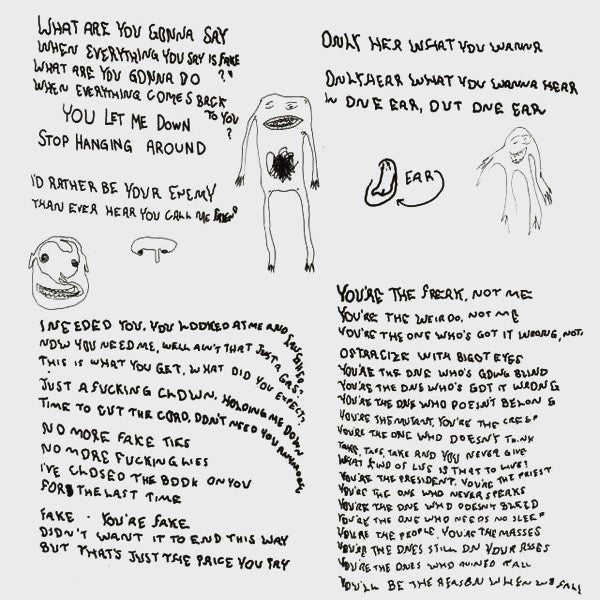 WHAT ARE YOU GONNA SAY
WHEN EVERYTHING YOU SAY IS FAKE
WHAT ARE YOU GONNA DO ?"
WHEN EVERYTHING COMES BACK
TO YOU
?
YOU LET ME DOWN
STOP HANGING AROUND
I'D RATHER BE YOUR ENEMY
THAN EVER HEAR YOU CALL ME FRIEND
I NEEDED YOU, YOU LOOKED AT ME AND LAUGHED,
NOW YOU NEED ME, WELL AIN'T THAT JUST A GAS?
THIS IS WHAT YOU GET, WHAT DID YOU EXPECT,
JUST A FUCKING CLOWN, HOLDING ME DOWN
TIME TO CUT THE CORD, DON'T NEED YOU ANYMORE
NO MORE FAKE TIES
NO MORE FUCKING LIES
I'VE CLOSED THE BOOK ON YOU
FOR THE LAST TIME
FAKE - YOU'RE FAKE
DIDN'T WANT IT TO END THIS WAY
BUT THAT'S JUST THE PRICE YOU PAY
ONLY HER WHAT YOU WANNA
ONLY HEAR WHAT YOU WANNA HEAR
IN ONE EAR, OUT ONE EAR
EAR
YOU'RE THE FREAK, NOT ME
YOU'RE THE WEIRDO, NOT ME
YOU'RE THE ONE WHO'S GOT IT WRONG, NOT
OSTRACIZE WITH BIGOT EYES
YOU'RE THE ONE WHO'S GOING BLIND
YOU'RE THE ONE WHO'S GOT IT WRONG
YOU'RE THE ONE WHO DOESN'T BELONG
YOU'RE THE MUTANT, YOU'RE THE CREEP
YOU'RE THE ONE WHO DOESN'T THINK
TAKE, TAKE, TAKE AND YOU NEVER GIVE
WHAT KIND OF LIFE IS THAT TO LIVE?
YOU'RE THE PRESIDENT, YOU'RE THE PRIEST
YOU'RE THE ONE WHO NEVER SPEAKS
YOU'RE THE ONE WHO DOESN'T BLEED
YOU'RE THE ONE WHO NEEDS NO SLEEP
YOU'RE THE PEOPLE, YOU'RE THE MASSES
YOU'RE THE ONES STILL ON YOUR ASSES
YOU'RE THE ONES WHO RUINED IT ALL
YOU'LL BE THE REASON WHEN WE FALL